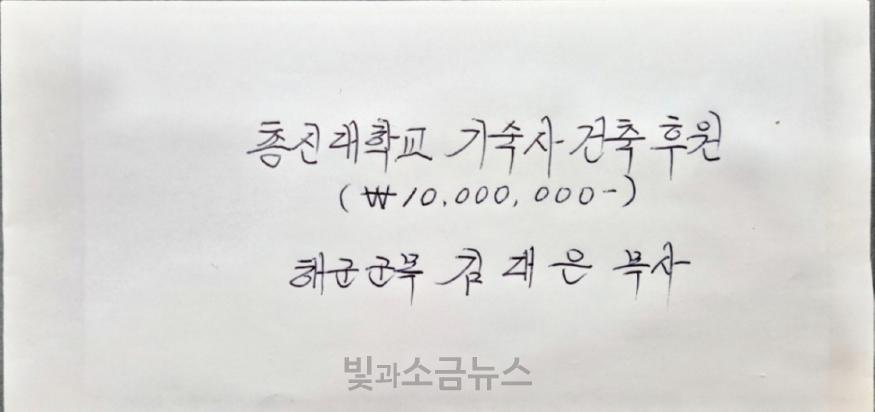 총신대학교 기숙사 건축후원
(₩10,000,000-)
해군군목 김대은 목사
빛과소금뉴스